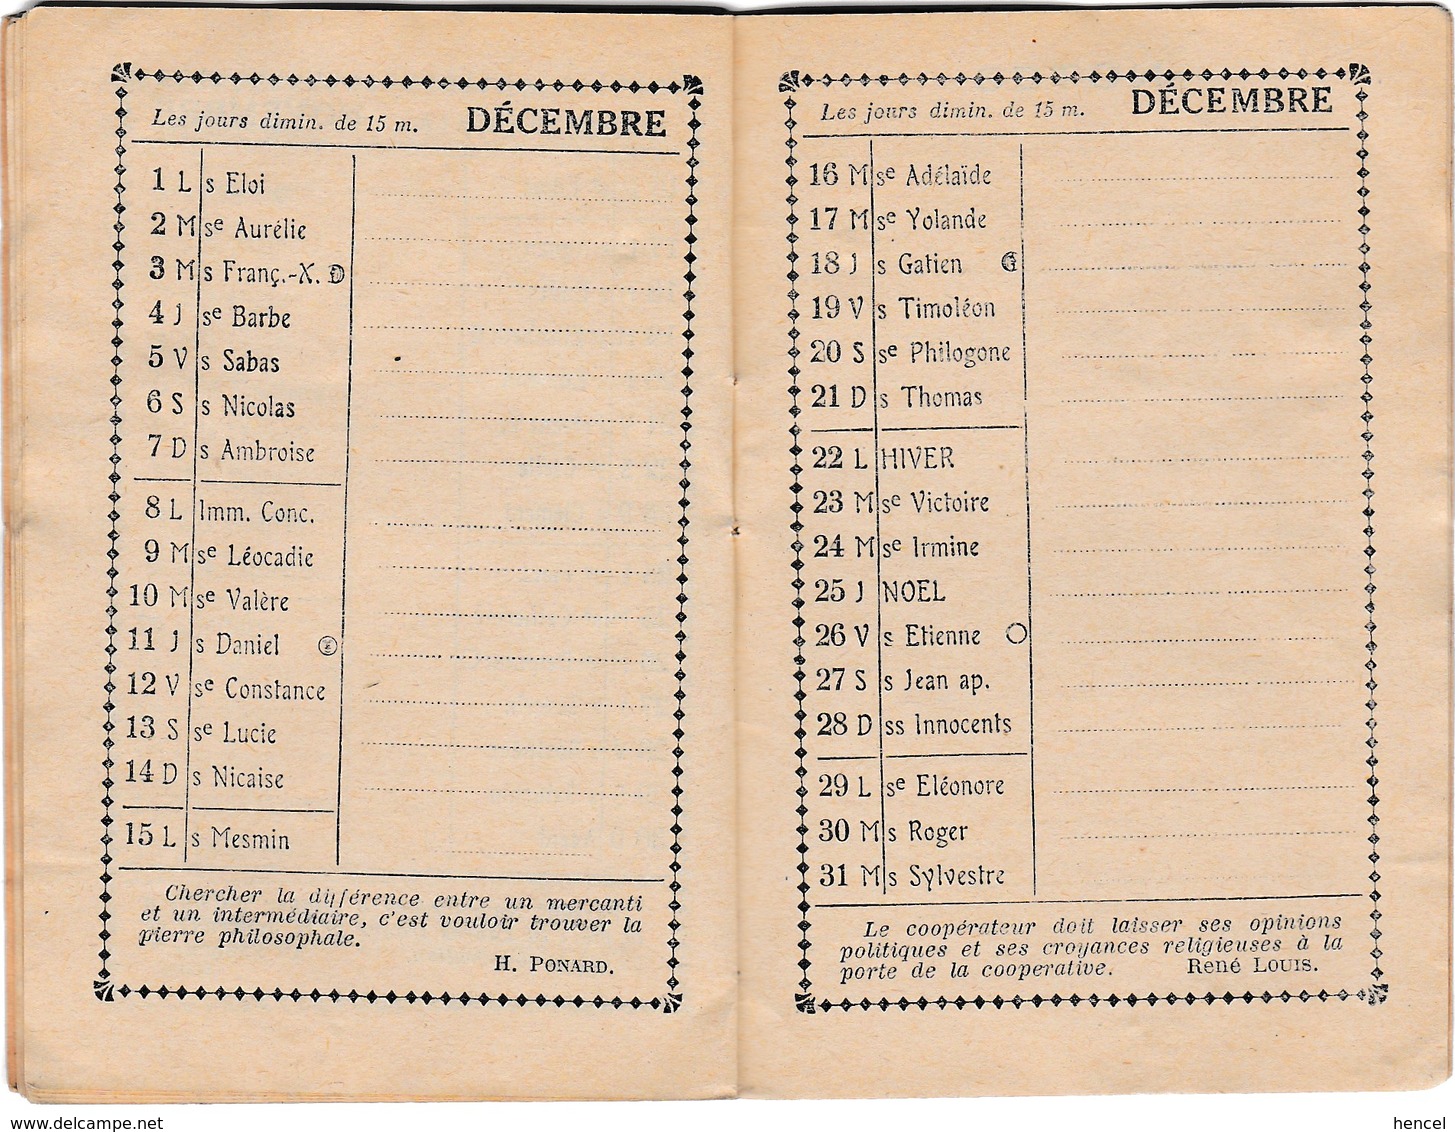 Les jours dimin. de 15 m. DÉCEMBRE
1 L s Eloi
2 M se Aurélie
3 M s Franç.-X. D
4 J se Barbe
5 V s Sabas
6 S s Nicolas
7 D s Ambroise
8 L Imm. Conc.
9 M se Léocadie
10 M se Valère
11 J s Daniel
12 V se Constance
13 S se Lucie
14 D s Nicaise
15 L s Mesmin
Chercher la différence entre un mercanti
et un intermédiaire, c'est vouloir trouver la
pierre philosophale.
H. PONARD.
Les jours dimin. de 15 m. DÉCEMBRE
16 M se Adélaïde
17 M se Yolande
18 J s Gatien
19 V s Timoléon
20 S se Philogone
21 D s Thomas
22 L HIVER
23 M se Victoire
24 M se Irmine
25 J NOEL
26 V s Etienne
27 S s Jean ap.
28 D ss Innocents
29 L se Eléonore
30 M s Roger
31 M s Sylvestre
Le coopérateur doit laisser ses opinions
politiques et ses croyances religieuses à la
porte de la cooperative. René LOUIS.
www.delcampe.net
hencel